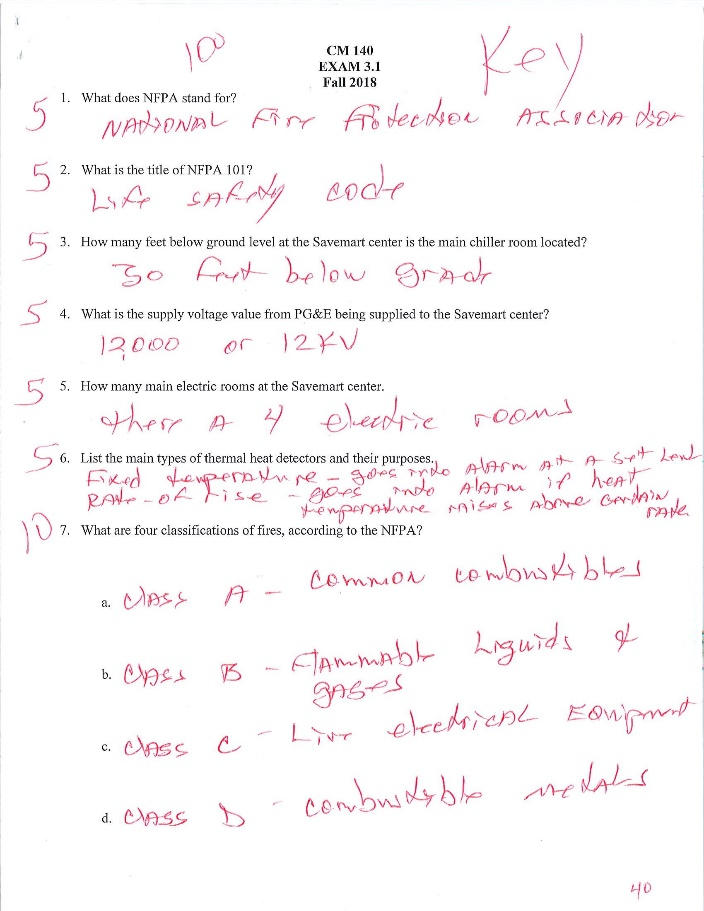 100
CM 140
EXAM 3.1
Fall 2018
Key
5 1. What does NFPA stand for?
NATIONAL Fire Protection ASSOCIATION
5 2. What is the title of NFPA 101?
Life SAFety code
5 3. How many feet below ground level at the Savemart center is the main chiller room located?
30 feet below grade
5 4. What is the supply voltage value from PG&E being supplied to the Savemart center?
12,000 or 12KV
5 5. How many main electric rooms at the Savemart center.
there A 4 electric rooms
5 6. List the main types of thermal heat detectors and their purposes.
Fixed temperature - goes into AlArm At A Set Level
RAte-of rise - goes into AlArm if heAt
temperature raises Above certain rate
10 7. What are four classifications of fires, according to the NFPA?
a. ClASS A - common combustibles
b. ClASS B - FlAmmAble Liquids &
gAses
c. ClASS C - Live electricAL Equipment
d. ClASS D - combustible metALS
40